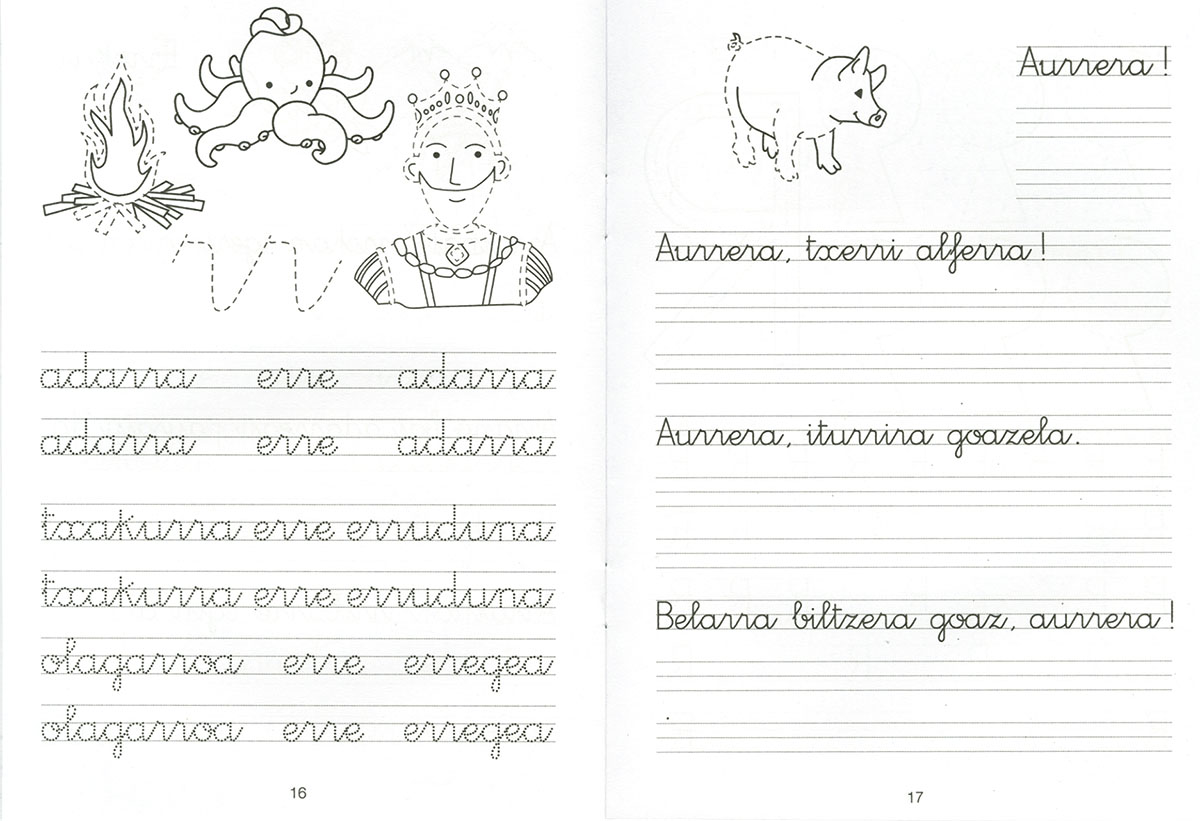 rr
adarra erre adarra
adarra erre adarra
txakurra erre erruduna
txakurra erre erruduna
olagarroa erre erregea
olagarroa erre erregea
16
Aurrera!
Aurrera, txerri alferra!
Aurrera, iturrira goazela.
Belarra biltzera goaz, aurrera!
17